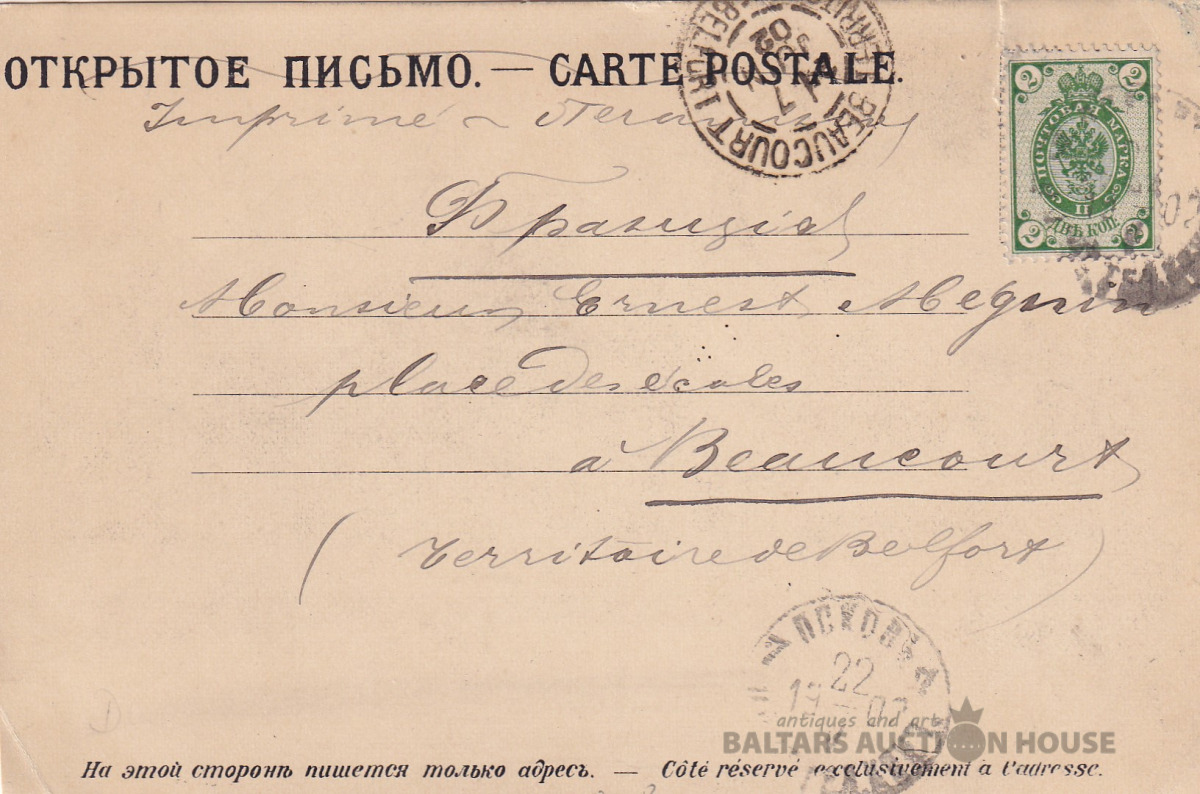 ОТКРЫТОЕ ПИСЬМО. — CARTE POSTALE.
Imprimé
Франція
Monsieur Ernest Megnin
place des écoles
à Beaucourt
(Territoire de Belfort)
BEAUCOURT
2 2
ПОЧТОВАЯ МАРКА
II
ДВѢ КОП.
2 2
ПСКОВЪ
22
antiques and art
BALTARS AUCTION HOUSE
На этой сторонѣ пишется только адресъ. — Côté réservé exclusivement à l'adresse.